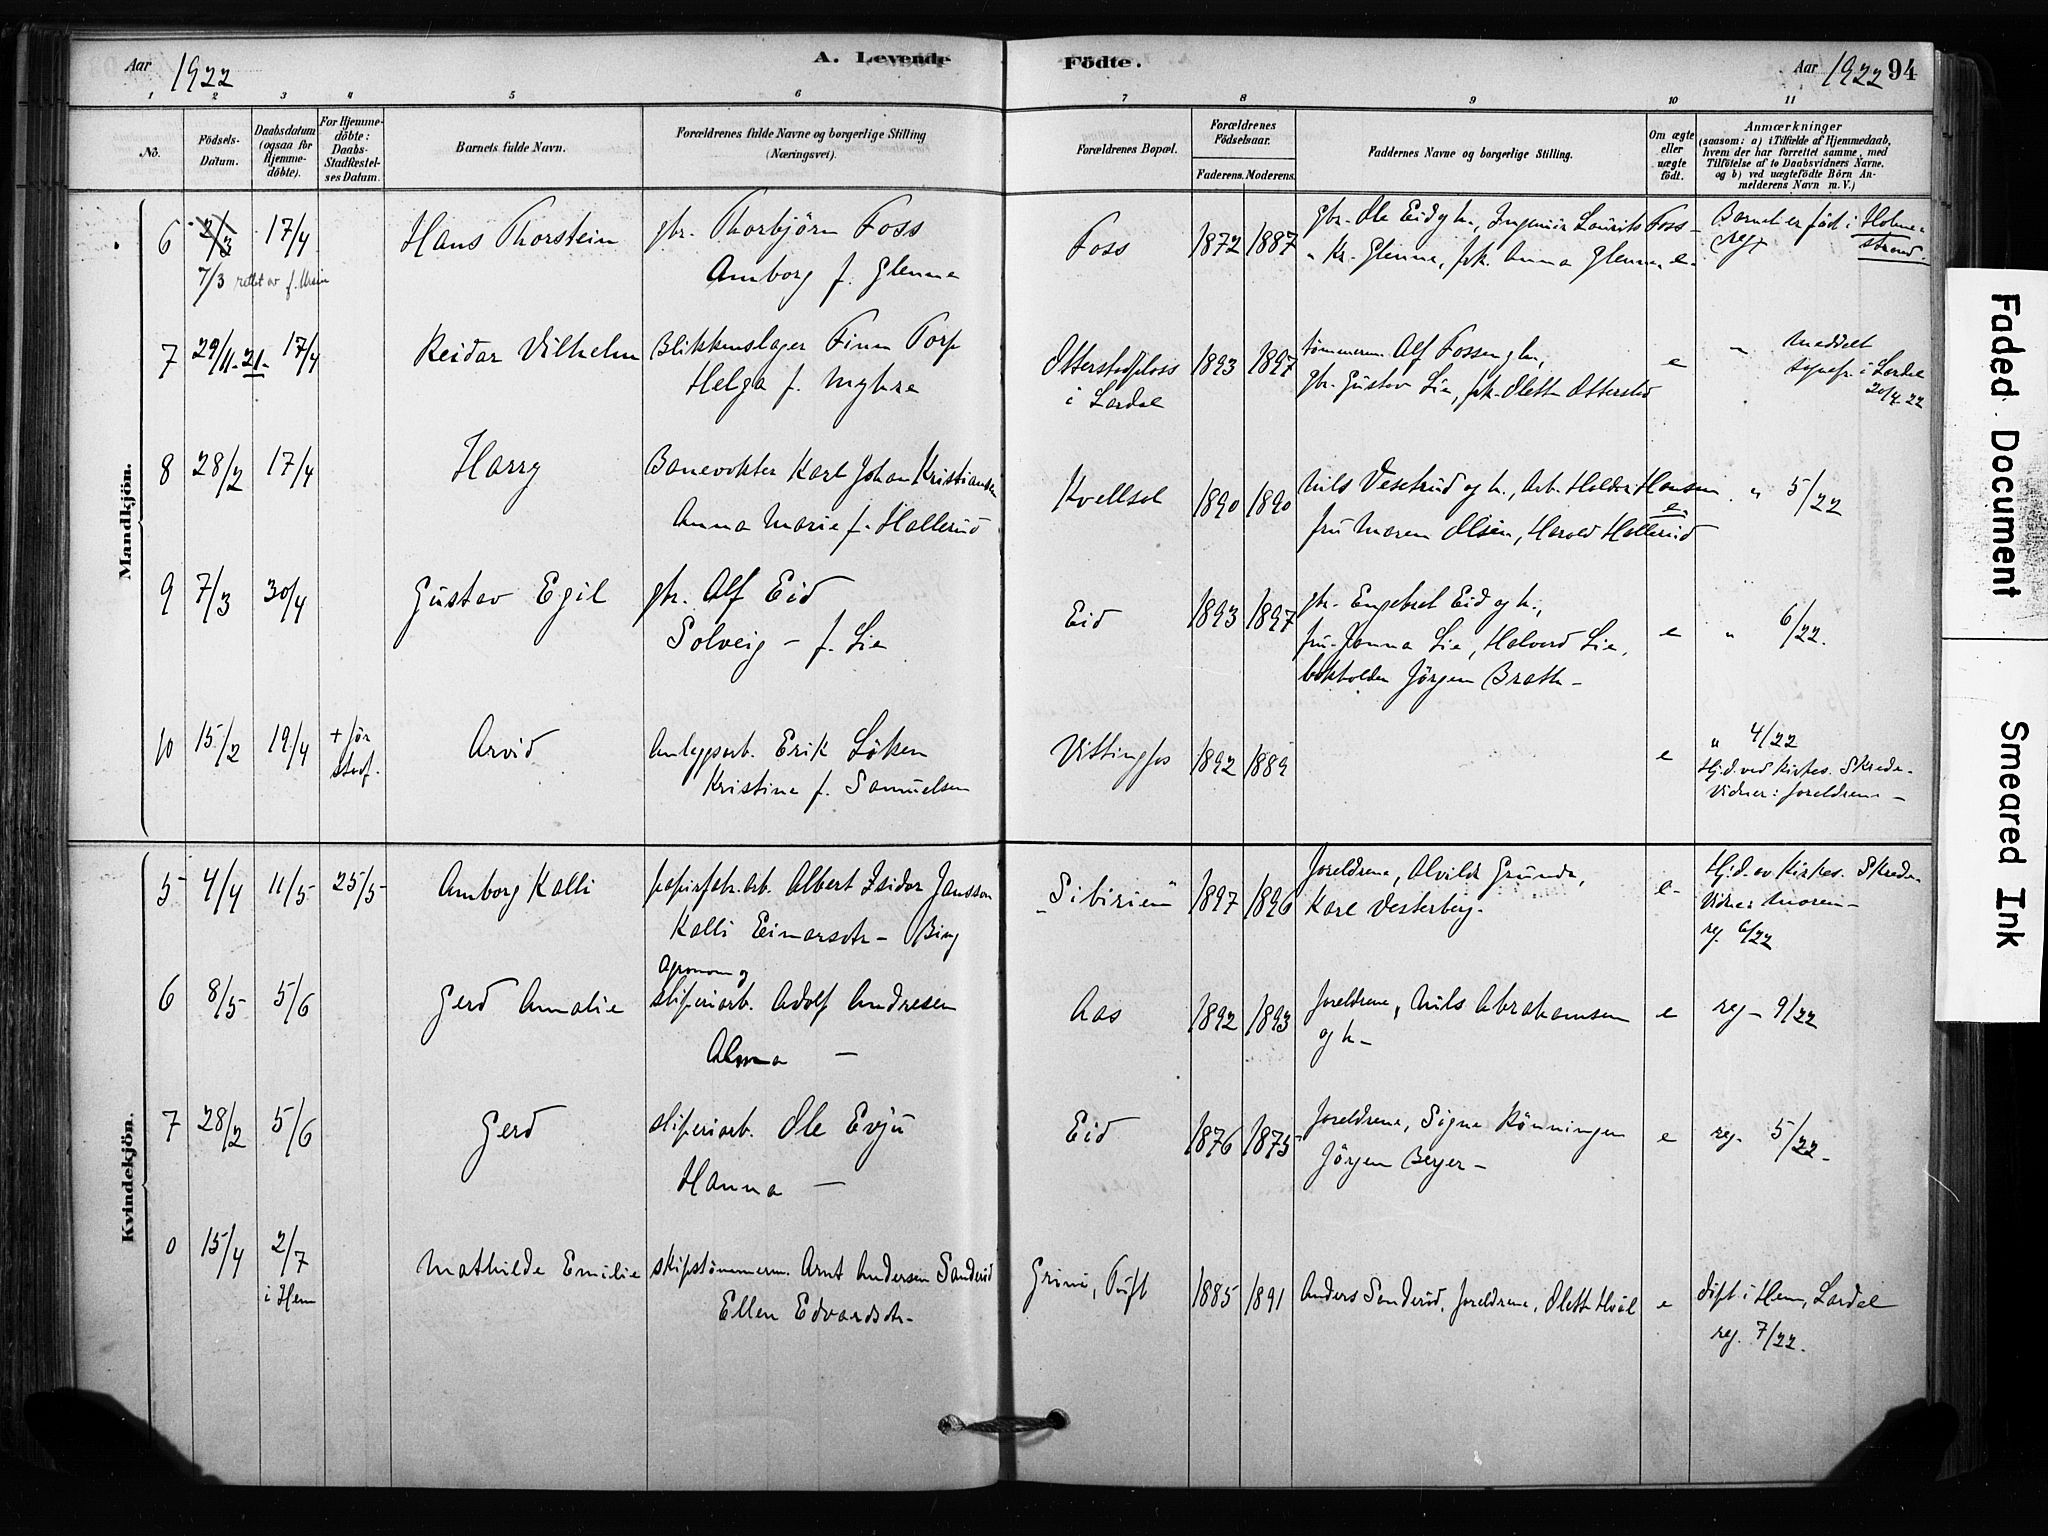 Aar 1922
A. Levende Födte.
Aar 1922 94
1 2 3 4 5 6 7 8 9 10 11
No.
Födsels-Datum.
Daabsdatum (ogsaa for Hjemme-döbte).
For Hjemme-döbte: Daabs-Stadfæstel-ses Datum.
Barnets fulde Navn.
Forældrenes fulde Navne og borgerlige Stilling (Næringsvei).
Forældrenes Bopæl.
Forældrenes Födselsaar.
Faderens. Moderens.
Faddernes Navne og borgerlige Stilling.
Om ægte eller uægte födt.
Anmærkninger
(saasom: a) i Tilfælde af Hjemmedaab, hvem der har forrettet samme, med Tilföielse af to Daabsvidners Navne, og b) ved uægtefödte Börn An-melderens Navn m. V.)
Mandkjön.
6 2/3 17/4 Hans Thorstein gbr. Thorbjörn Foss Foss 1872 1887 gbr. Ole Eid og h., Ingeniör Laurits Foss - Barnet er född i Holme-
7/3 rettet av f. Amborg f. Glenna " Kr. Glenna, frk. Anna Glenna e- reg strand.
7 29/11-21- 17/4 Reidar Vilhelm Blikkenslager Finn Torp Otterstadploss 1893 1897 tömmerm. Alf Fossen g h., e " Meddelt
Helga f. Myhre i Lardal gbr. Gustav Lie, frk. Olett Ottersted sognepr. i Lardal
20/4 22
8 28/2 17/4 Harry Banevokter Karl Johan Kristiansen Kvellsol 1890 1890 Nils Vesetrud og h., Arb. Haldor Hansen e " 5/22
Anna Marie f. Hallerud fru Maren Olsen, Harald Hallerud
9 7/3 30/4 Gustav Egil gbr. Alf Eid Eid 1893 1897 gbr. Engebret Eid og h., e " 6/22.
Solveig - f. Lie fru Janna Lie, Halvord Lie,
bokholder Jörgen Brath -
10 15/2 19/4 + för stadf. Arvid Anlegsarb. Erik Löken Vittingfos 1892 1889 e " 4/22
Kristine f. Samuelsen Hj.d. ved Kirkes. Skrede-
Vidner: foreldrene -
Kvindekjön.
5 4/4 11/5 25/5 Amborg Kalli papirfabr. arb. Albert Isidor Jansson "Sibirien" 1897 1896 foreldrene, Alvild Grunde, e- Hj.d. av Kirkes. Skrede-
Kalli Eimarsdtr - Bing Karl Vesterberg - Vidner moren -
reg. 6/22
6 8/5 5/6 Gerd Amalie Agronom og
sliperiarb. Adolf Andresen Aas 1892 1893 foreldrene, Nils Abrahamsen e reg - 9/22
Alma - og h -
7 28/2 5/6 Gerd sliperiarb. Ole Evju Eid 1876 1875 foreldrene, Signe Rönningen e reg. 5/22 -
Hanna - Jörgen Berger -
0 15/4 2/7 i Hem Mathilde Emilie skipstömmerm. Arnt Andersen Sanderöd Grini, Tuft 1885 1891 Anders Sanderöd, foreldrene, Olett Hvål e döpt i Hem, Lardal
Ellen Edvardsdtr - reg. 7/22.
Faded Document
Smeared Ink